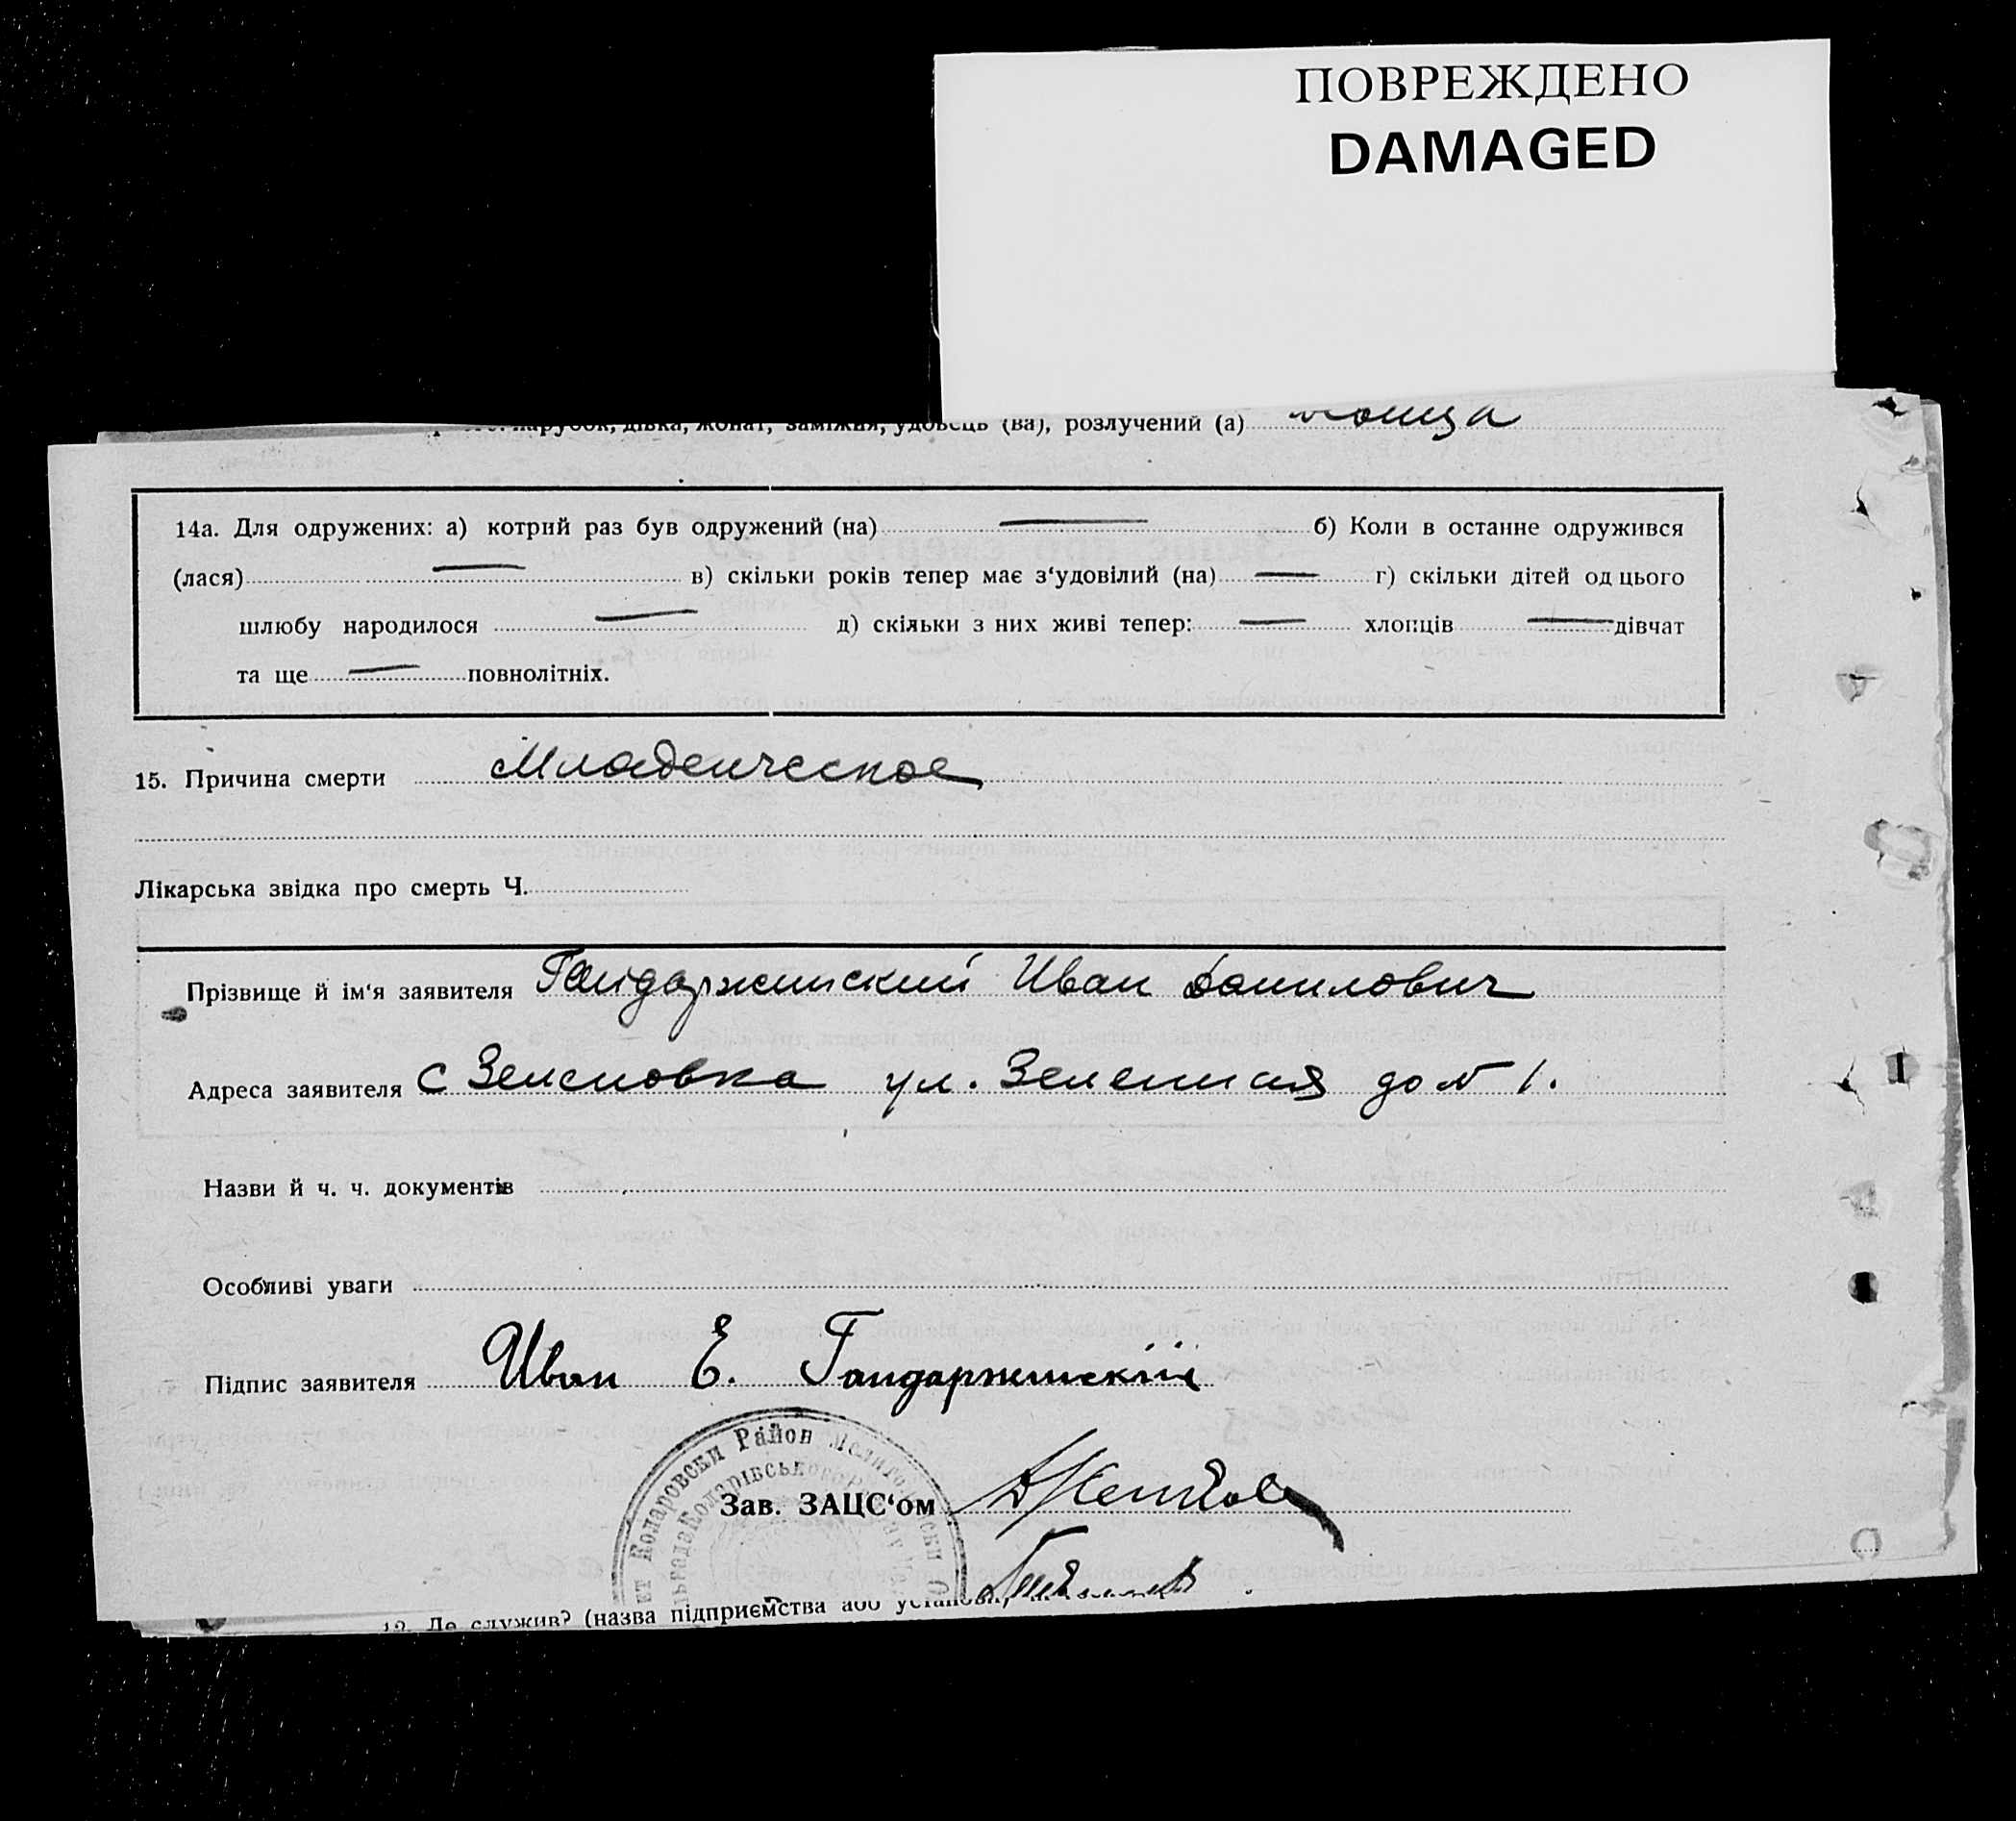 ПОВРЕЖДЕНО
DAMAGED
парубок, дівка, жонат, заміжня, удовець (ва), розлучений (а)
14а. Для одружених: а) котрий раз був одружений (на) — б) Коли в останнє одружився
(лася) — в) скільки років тепер має з‘удовілий (на) — г) скільки дітей од цього
шлюбу народилося — д) скільки з них живі тепер: — хлопців — дівчат
та ще — повнолітніх.
15. Причина смерти Младенческое
Лікарська звідка про смерть Ч.
Прізвище й ім‘я заявителя Гайдаржийский Иван Данилович
Адреса заявителя с Зеленовка ул. Зеленная дом 1.
Назви й ч. ч. документів
Особливі уваги
Підпис заявителя Иван Е. Гандаржишскій
Коларовски Район
Коларівського
Зав. ЗАЦС‘ом
12. Де служив? (назва підприємства або установи,